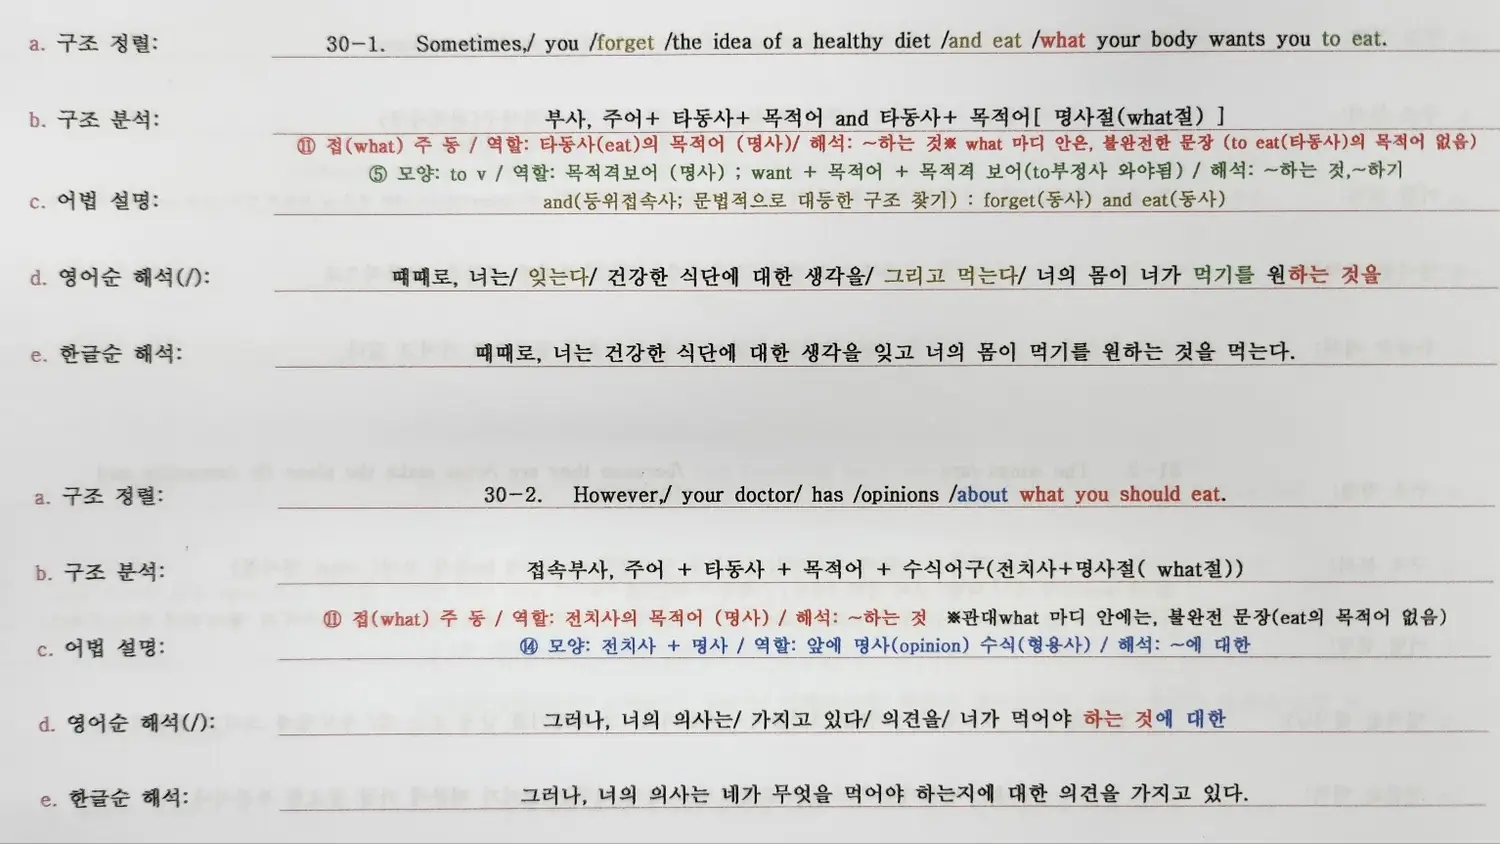 a. 구조 정렬: 30-1. Sometimes,/ you /forget /the idea of a healthy diet /and eat /what your body wants you to eat.
b. 구조 분석: 부사, 주어+ 타동사+ 목적어 and 타동사+ 목적어[ 명사절(what절) ]
⑪ 접(what) 주 동 / 역할: 타동사(eat)의 목적어 (명사)/ 해석: ~하는 것※ what 마디 안은, 불완전한 문장 (to eat(타동사)의 목적어 없음)
⑤ 모양: to v / 역할: 목적격보어 (명사) ; want + 목적어 + 목적격 보어(to부정사 와야됨) / 해석: ~하는 것,~하기
c. 어법 설명: and(등위접속사; 문법적으로 대등한 구조 찾기) : forget(동사) and eat(동사)
d. 영어순 해석(/): 때때로, 너는/ 잊는다/ 건강한 식단에 대한 생각을/ 그리고 먹는다/ 너의 몸이 너가 먹기를 원하는 것을
e. 한글순 해석: 때때로, 너는 건강한 식단에 대한 생각을 잊고 너의 몸이 먹기를 원하는 것을 먹는다.
a. 구조 정렬: 30-2. However,/ your doctor/ has /opinions /about what you should eat.
b. 구조 분석: 접속부사, 주어 + 타동사 + 목적어 + 수식어구(전치사+명사절( what절))
⑪ 접(what) 주 동 / 역할: 전치사의 목적어 (명사) / 해석: ~하는 것 ※관대what 마디 안에는, 불완전 문장(eat의 목적어 없음)
c. 어법 설명: ⑭ 모양: 전치사 + 명사 / 역할: 앞에 명사(opinion) 수식(형용사) / 해석: ~에 대한
d. 영어순 해석(/): 그러나, 너의 의사는/ 가지고 있다/ 의견을/ 너가 먹어야 하는 것에 대한
e. 한글순 해석: 그러나, 너의 의사는 네가 무엇을 먹어야 하는지에 대한 의견을 가지고 있다.